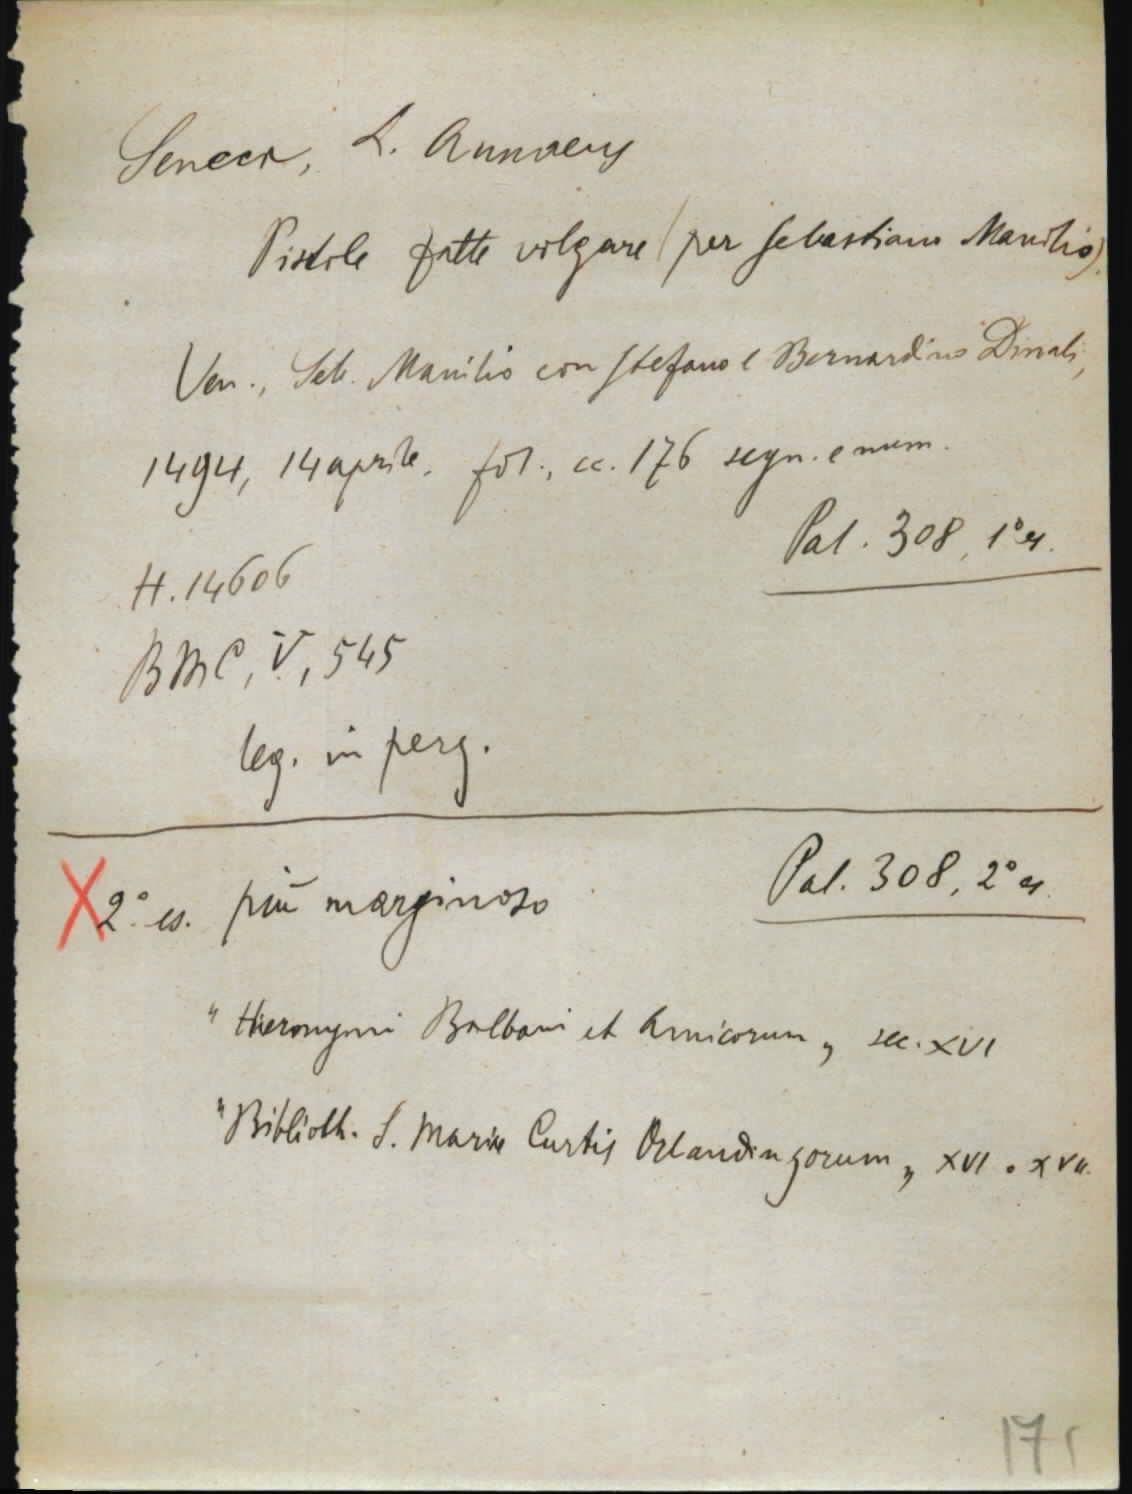 Seneca, L. Annaeus
Pistole fatte volgare (per Sebastiano Manilio).
Ven., Seb. Manilio con Stefano e Bernardino Dinali,
1494, 14 aprile. fol., cc. 176 segn. e num.
Pal. 308, 1° es.
H. 14606
BMC, V, 545
leg. in perg.
Pal. 308, 2° es.
X 2° es. più marginoso
"Hieronymi Balbani et Amicorum" sec. XVI
"Biblioth. S. Marie Curtis Orlandingorum" XVI o XVII.
17